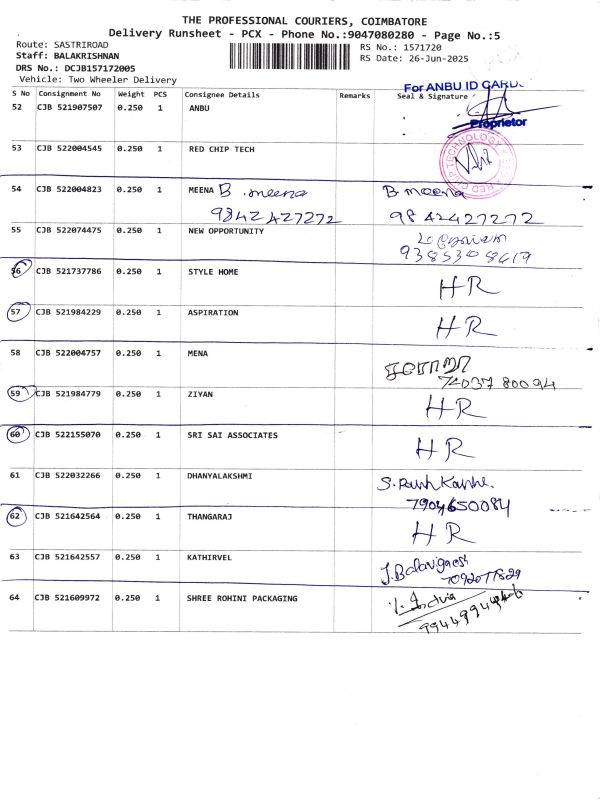 THE PROFESSIONAL COURIERS, COIMBATORE
Delivery Runsheet - PCX - Phone No.:9047080280 - Page No.:5
Route: SASTRIROAD
RS No.: 1571720
Staff: BALAKRISHNAN
RS Date: 26-Jun-2025
DRS No.: DCJB157172005
Vehicle: Two Wheeler Delivery
For ANBU ID CARD.
S No Consignment No Weight PCS Consignee Details Remarks Seal & Signature
52 CJB 521907507 0.250 1 ANBU
Proprietor
53 CJB 522004545 0.250 1 RED CHIP TECH
RED CHIP TECHNOLOGY
54 CJB 522004823 0.250 1 MEENA B. meena B meena
9842427272 9842427272
55 CJB 522074475 0.250 1 NEW OPPORTUNITY
9385308619
56 CJB 521737786 0.250 1 STYLE HOME HR
57 CJB 521984229 0.250 1 ASPIRATION HR
58 CJB 522004757 0.250 1 MENA
7403780094
59 CJB 521984779 0.250 1 ZIYAN HR
60 CJB 522155070 0.250 1 SRI SAI ASSOCIATES HR
61 CJB 522032266 0.250 1 DHANYALAKSHMI S.
7904650084
62 CJB 521642564 0.250 1 THANGARAJ HR
63 CJB 521642557 0.250 1 KATHIRVEL
64 CJB 521609972 0.250 1 SHREE ROHINI PACKAGING